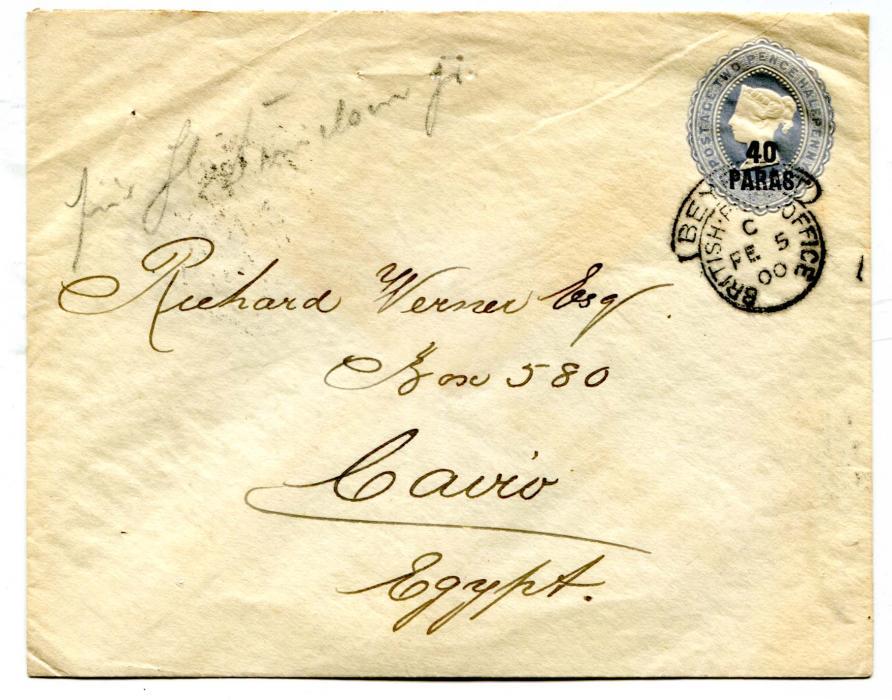 POSTAGE TWO PENCE HALFPENNY
40
PARAS
BRITISH OFFICE
C
FE 5
00
Richard Werner Esq.
Box 580
Cairo
Egypt.